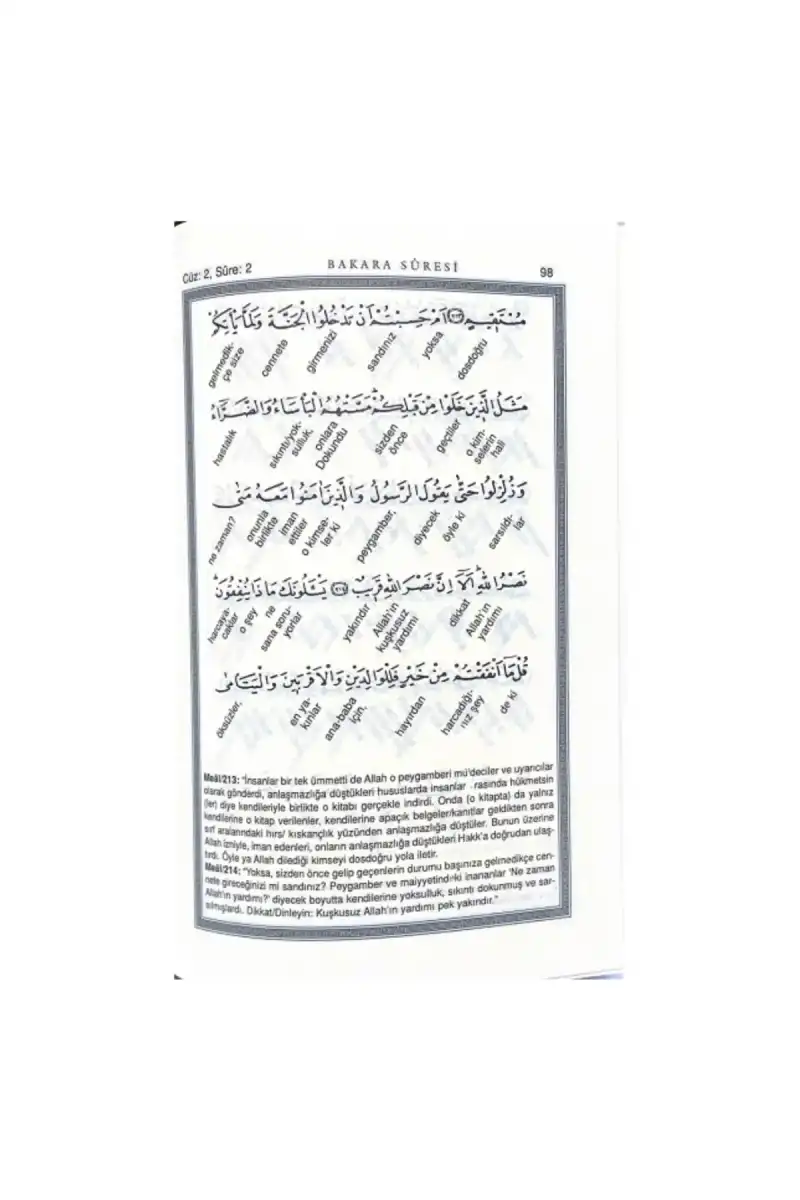 Cüz: 2, Sûre: 2 BAKARA SÛRESİ 98
مُسْتَقٖيمٍ ﴿٢١٣﴾ اَمْ حَسِبْتُمْ اَنْ تَدْخُلُوا الْجَنَّةَ وَلَمَّا يَأْتِكُمْ
dosdoğru yoksa sandınız girmenizi cennete gelmedik-
çe size
مَثَلُ الَّذٖينَ خَلَوْا مِنْ قَبْلِكُمْ مَسَّتْهُمُ الْبَأْسَاءُ وَالضَّرَّاءُ
o kim-
selerin
hali geçtiler sizden
önce onlara
Dokundu sıkıntı/yok-
sulluk, hastalık
وَزُلْزِلُوا حَتّٰى يَقُولَ الرَّسُولُ وَالَّذٖينَ اٰمَنُوا مَعَهُ مَتٰى
sarsıldı-
lar öyle ki diyecek peygamber, o kimse-
ler ki iman
ettiler onunla
birlikte ne zaman?
نَصْرُ اللّٰهِ اَلَا اِنَّ نَصْرَ اللّٰهِ قَرٖيبٌ ﴿٢١٤﴾ يَسْـَٔلُونَكَ مَاذَا يُنْفِقُونَ
Allah'ın
yardımı dikkat Allah'ın
kuşkusuz
yardımı yakındır sana soru-
yorlar ne o şey harcaya-
caklar
قُلْ مَا اَنْفَقْتُمْ مِنْ خَيْرٍ فَلِلْوَالِدَيْنِ وَالْاَقْرَبٖينَ وَالْيَتَامٰى
de ki harcadığı-
nız şey hayırdan ana-baba
için, en ya-
kınlar öksüzler,
Meâl/213: "İnsanlar bir tek ümmetti de Allah o peygamberi mü'deciler ve uyarıcılar
olarak gönderdi, anlaşmazlığa düştükleri hususlarda insanlar rasında hükmetsin
(ler) diye kendileriyle birlikte o kitabı gerçekle indirdi. Onda (o kitapta) da yalnız
kendilerine o kitap verilenler, kendilerine apaçık belgeler/kanıtlar geldikten sonra
sırf aralarındaki hırs/ kıskançlık yüzünden anlaşmazlığa düştüler. Bunun üzerine
Allah izniyle, iman edenleri, onların anlaşmazlığa düştükleri Hakk'a doğrudan ulaş-
tırdı. Öyle ya Allah dilediği kimseyi dosdoğru yola iletir.
Meâl/214: "Yoksa, sizden önce gelip geçenlerin durumu başınıza gelmedikçe cen-
nete gireceğinizi mi sandınız? Peygamber ve maiyyetindeki inananlar 'Ne zaman
Allah'ın yardımı?' diyecek boyutta kendilerine yoksulluk, sıkıntı dokunmuş ve sar-
sılmışlardı. Dikkat/Dinleyin: Kuşkusuz Allah'ın yardımı pek yakındır."